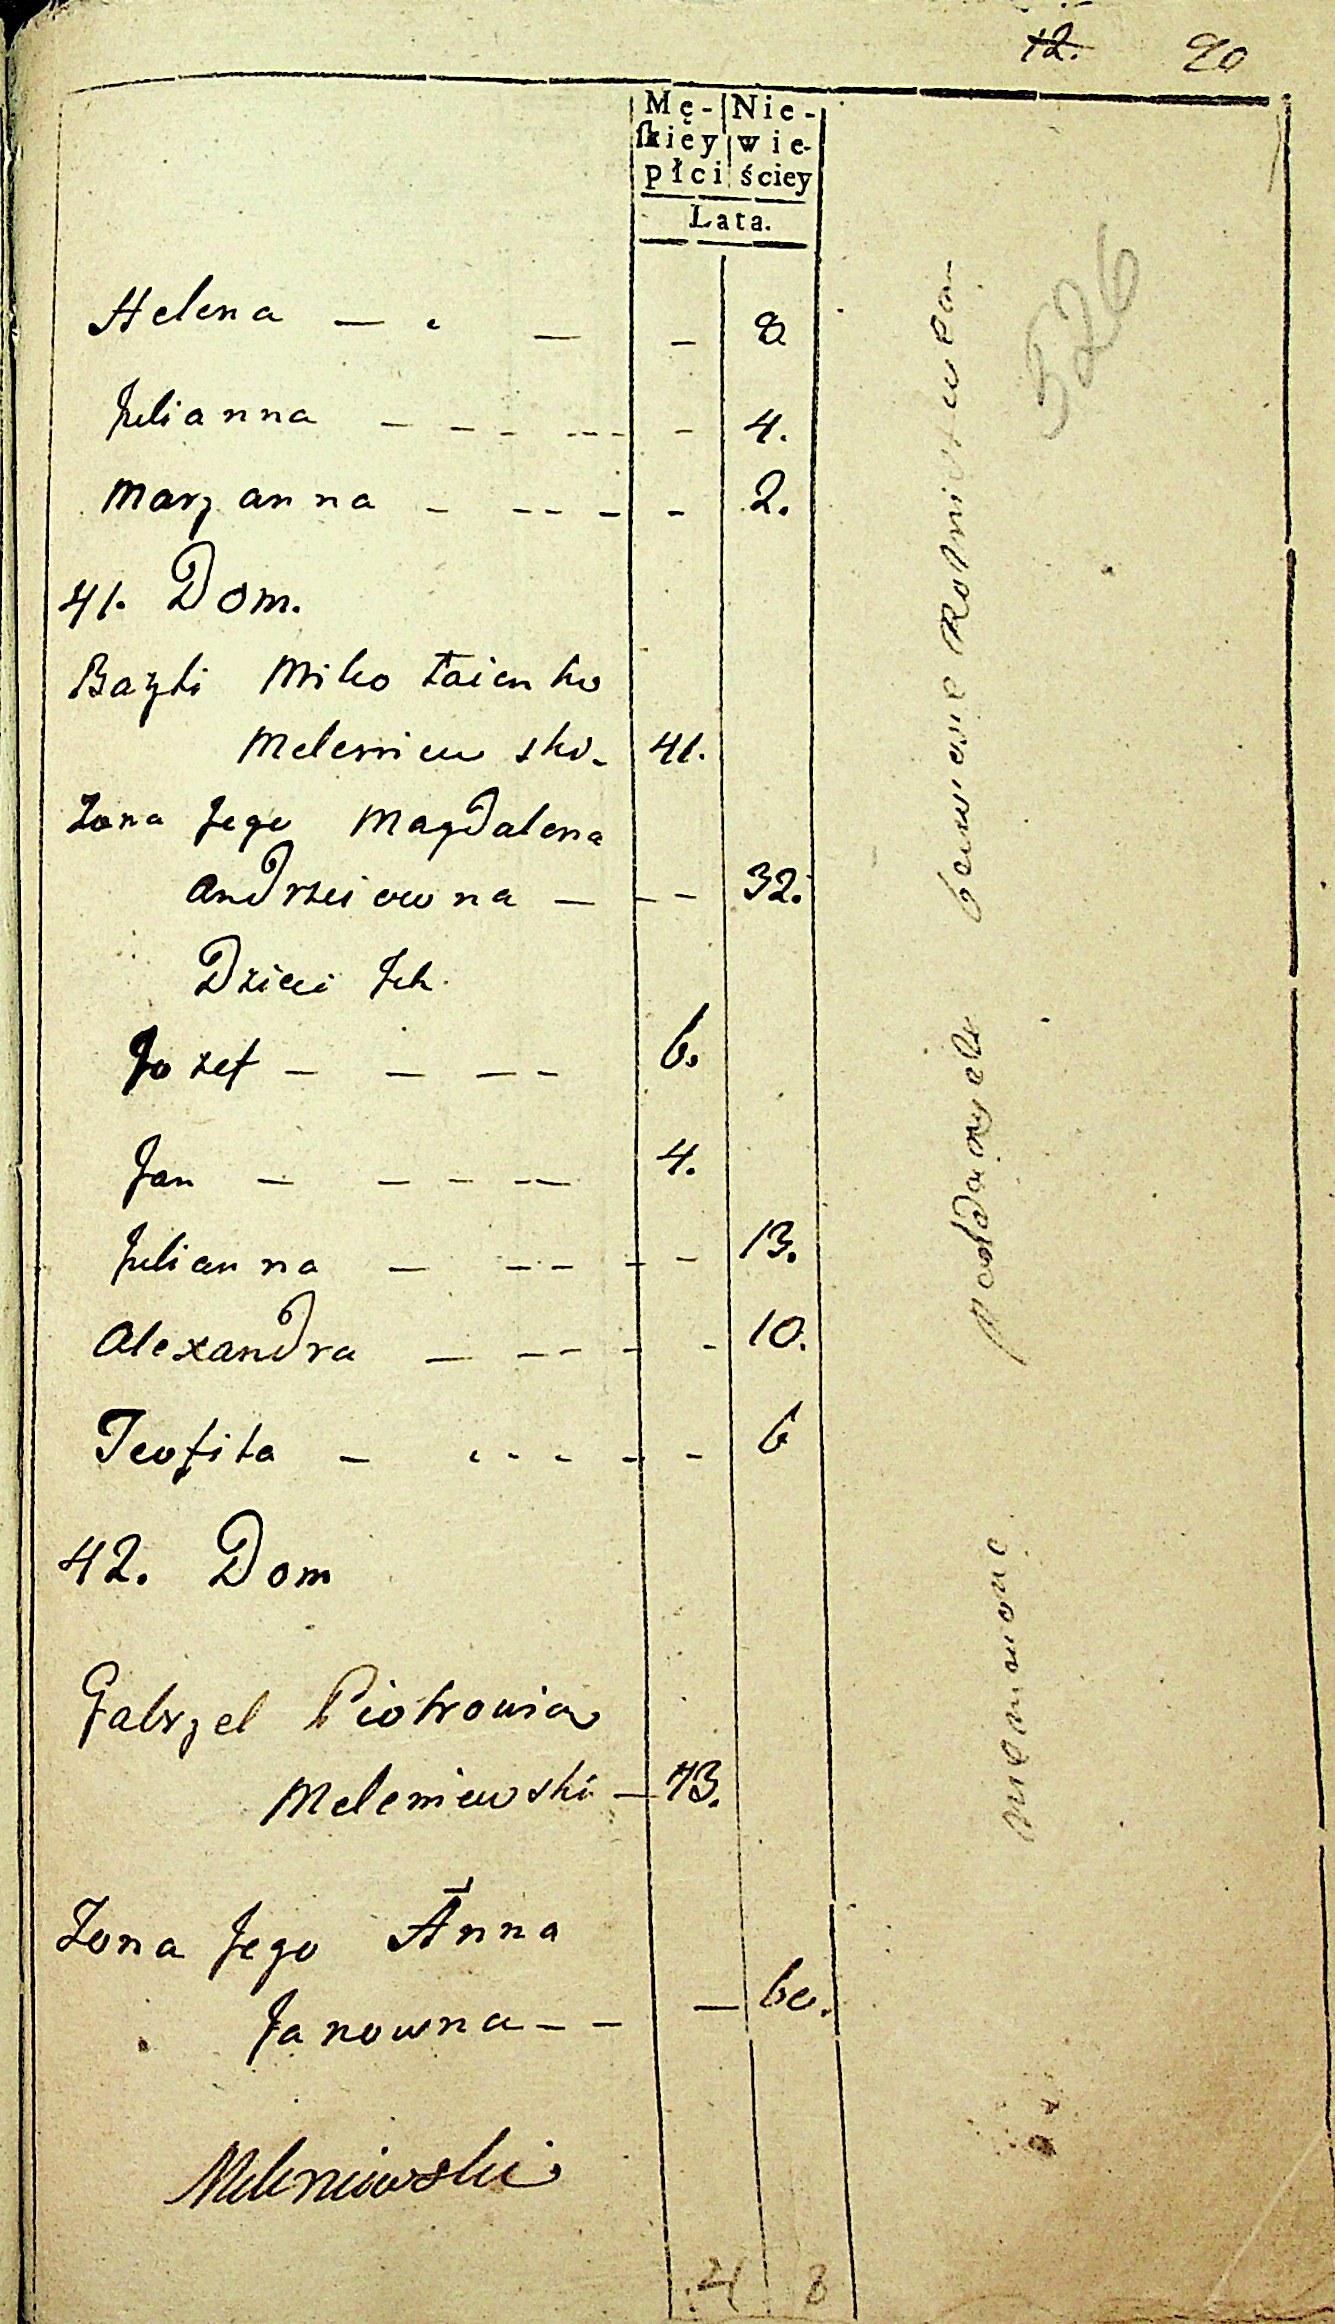 12. 90
Mę- Nie-
ſkiey wie-
płci ściey
Lata.
526
Helena — - — - 8
Julianna - - - --- - 4.
Maryanna - -- - - 2.
41. Dom.
Bazyli Mikołaienko
Meleniewski - 41.
Zona Jego Magdalena
Andrzeiowna — - - 32.
Dzieci Ich.
Jozef - - -- 6.
Jan - - - -- 4.
Julianna - -- - - 13.
Alexandra - -- - - 10.
Teofila - - - - - - 6
42. Dom
Gabryel Piotrowicz
Meleniewski - 73.
Zona Jego Anna
Janowna - - - 60.
Meleniewski
4 8